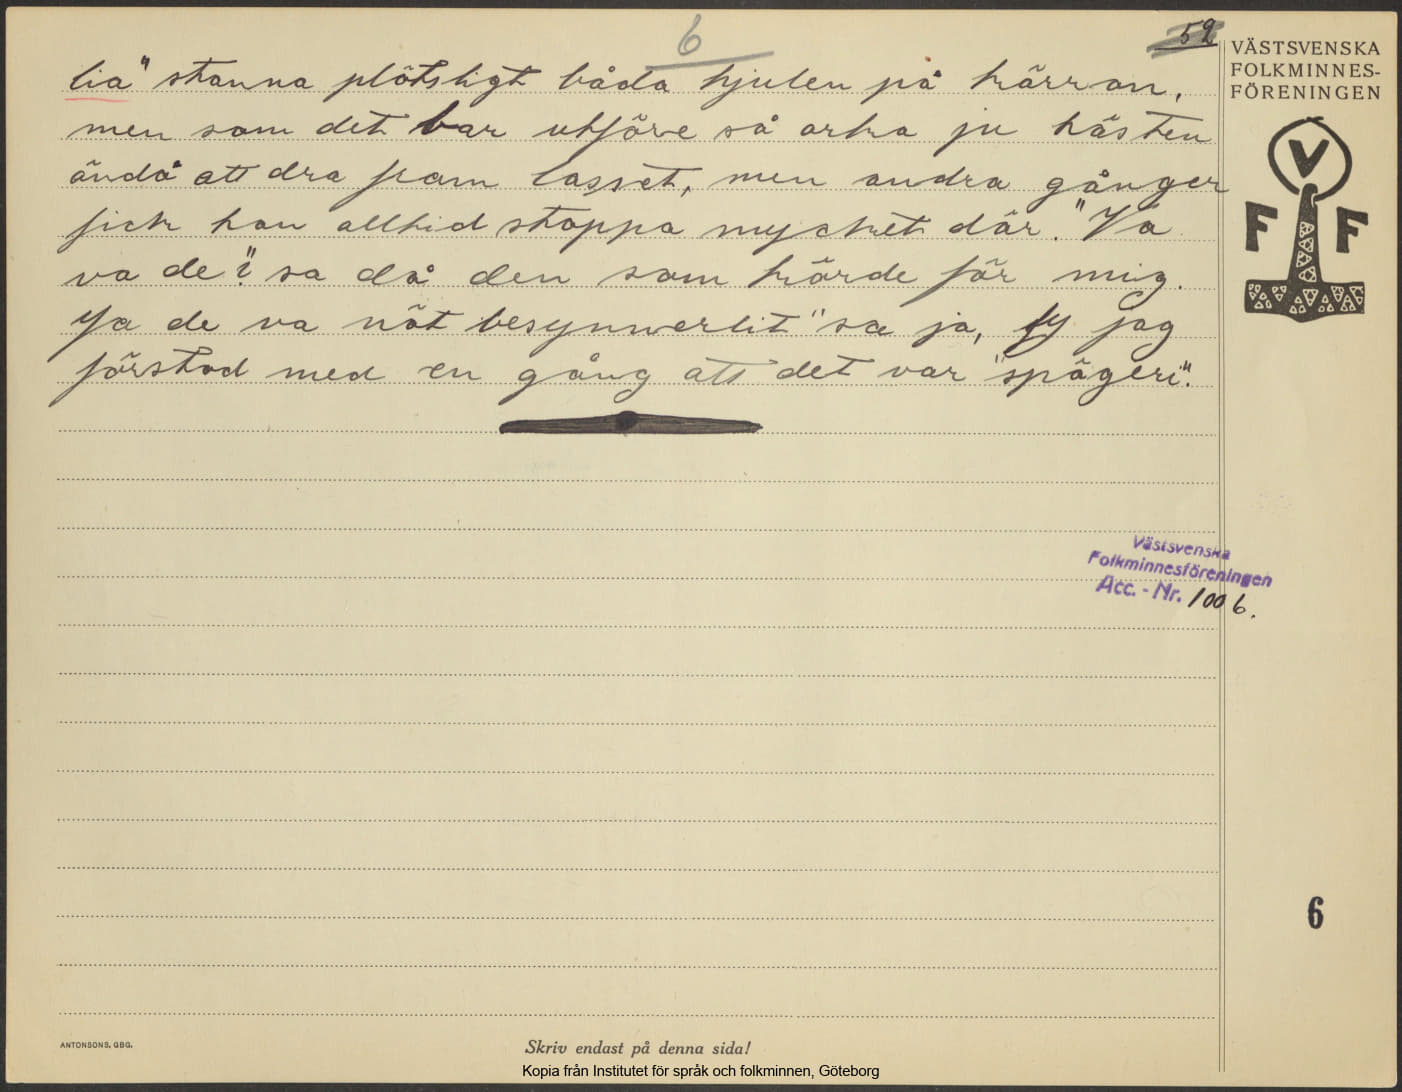 6
52
VÄSTSVENSKA
FOLKMINNES-
FÖRENINGEN
V
F F
lia" stanna plötsligt båda hjulen på kärran,
men som det bar utföre så orka ju hästen
ändå att dra fram lasset, men andra gånger
fick han alltid stoppa mycket där. "Va
va de"? sa då den som körde för mig.
Ja de va nöt besynnerlit" sa ja, ty jag
förstod med en gång att det var "spögeri".
Västsvenska
Folkminnesföreningen
Acc. - Nr. 1006.
6
ANTONSONS, GBG.
Skriv endast på denna sida!
Kopia från Institutet för språk och folkminnen, Göteborg